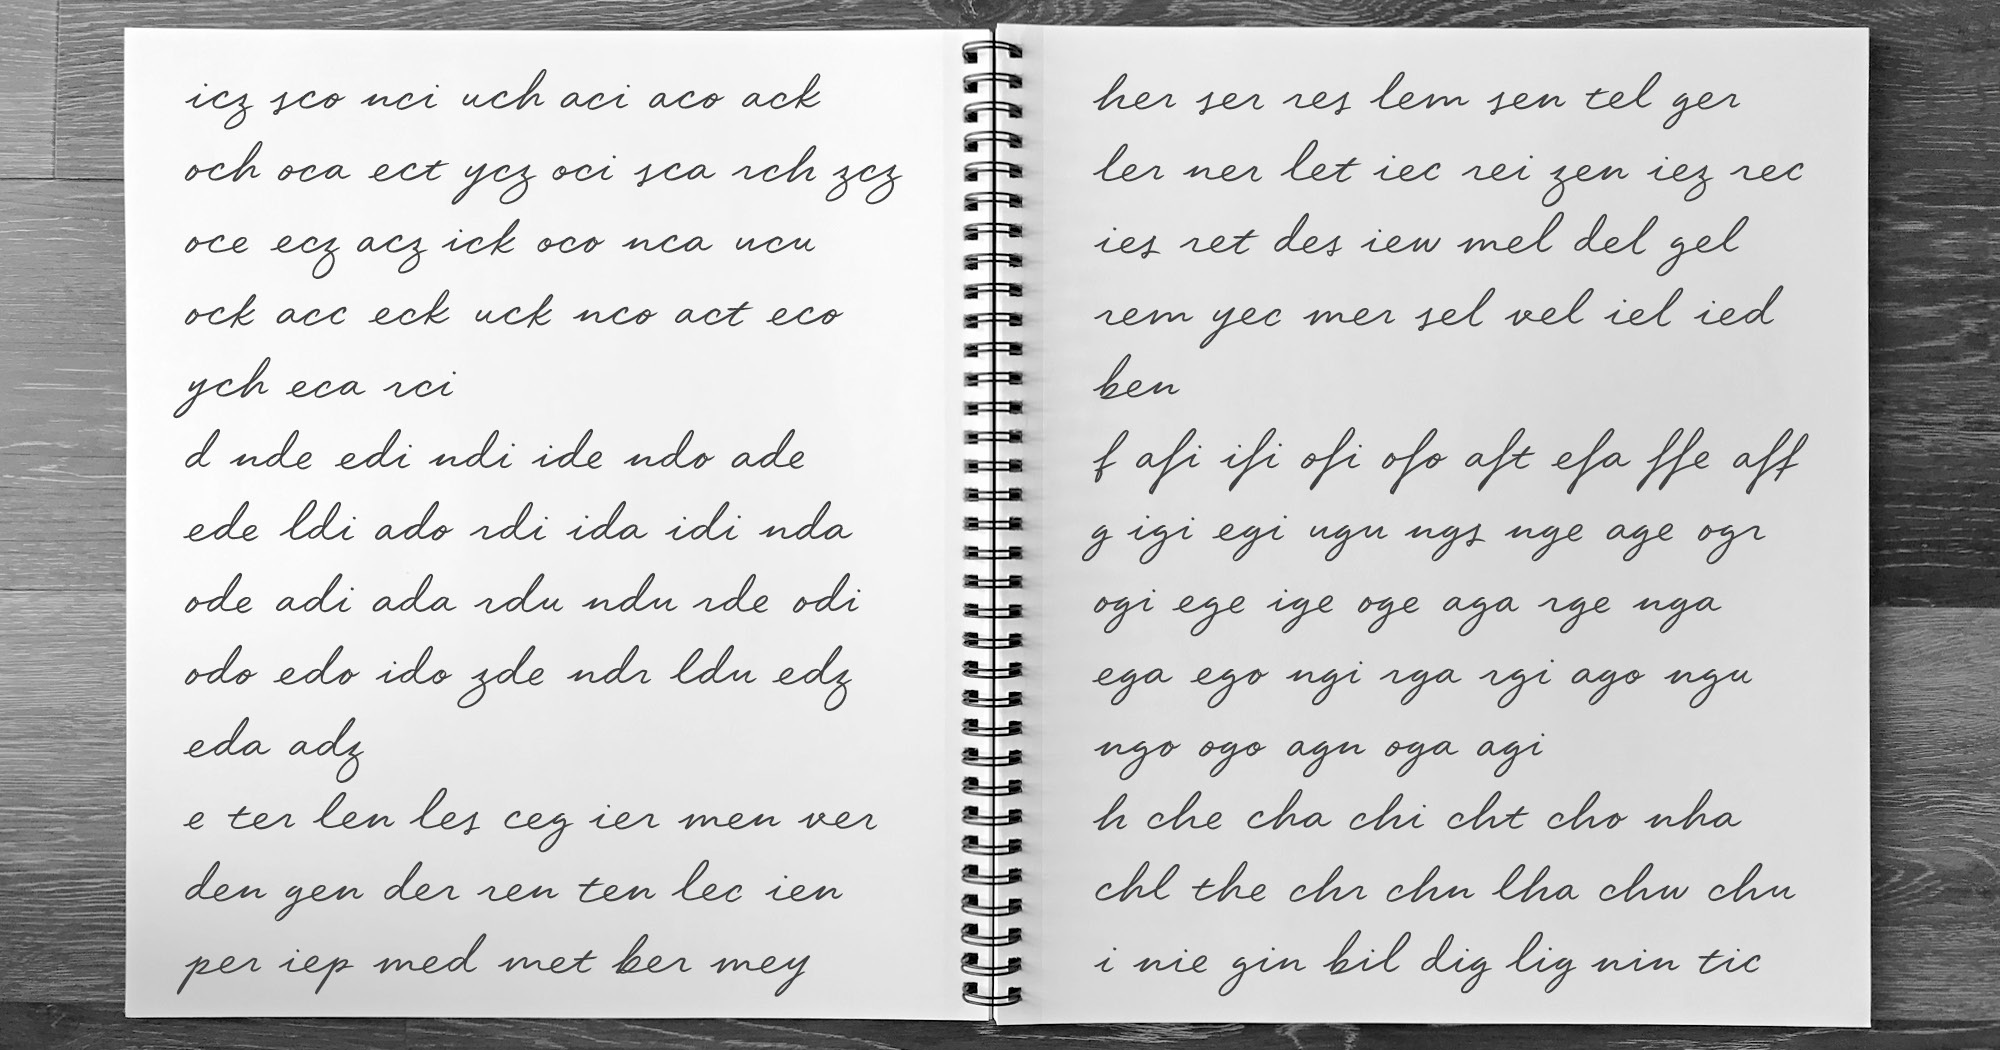 icz sco nci uch aci aco ack
och oca ect ycz oci sca rch zcz
oce ecz acz ick oco nca ucu
ock acc eck uck nco act eco
ych eca rci
d nde edi ndi ide ndo ade
ede ldi ado rdi ida idi nda
ode adi ada rdu ndu rde odi
odo edo ido zde ndr ldu edz
eda adz
e ter len les ceg ier men ver
den gen der ren ten lec ien
per iep med met ber mey
her ser res lem sen tel ger
ler ner let iec rei zen iez rec
ies ret des iew mel del gel
rem yec mer sel vel iel ied
ben
f afi ifi ofi ofo aft efa ffe aff
g igi egi ugu ngs nge age ogr
ogi ege ige oge aga rge nga
ega ego ngi rga rgi ago ngu
ngo ogo agn oga agi
h che cha chi cht cho nha
chl the chr chn lha chw chu
i nie gin bil dig lig nin tic